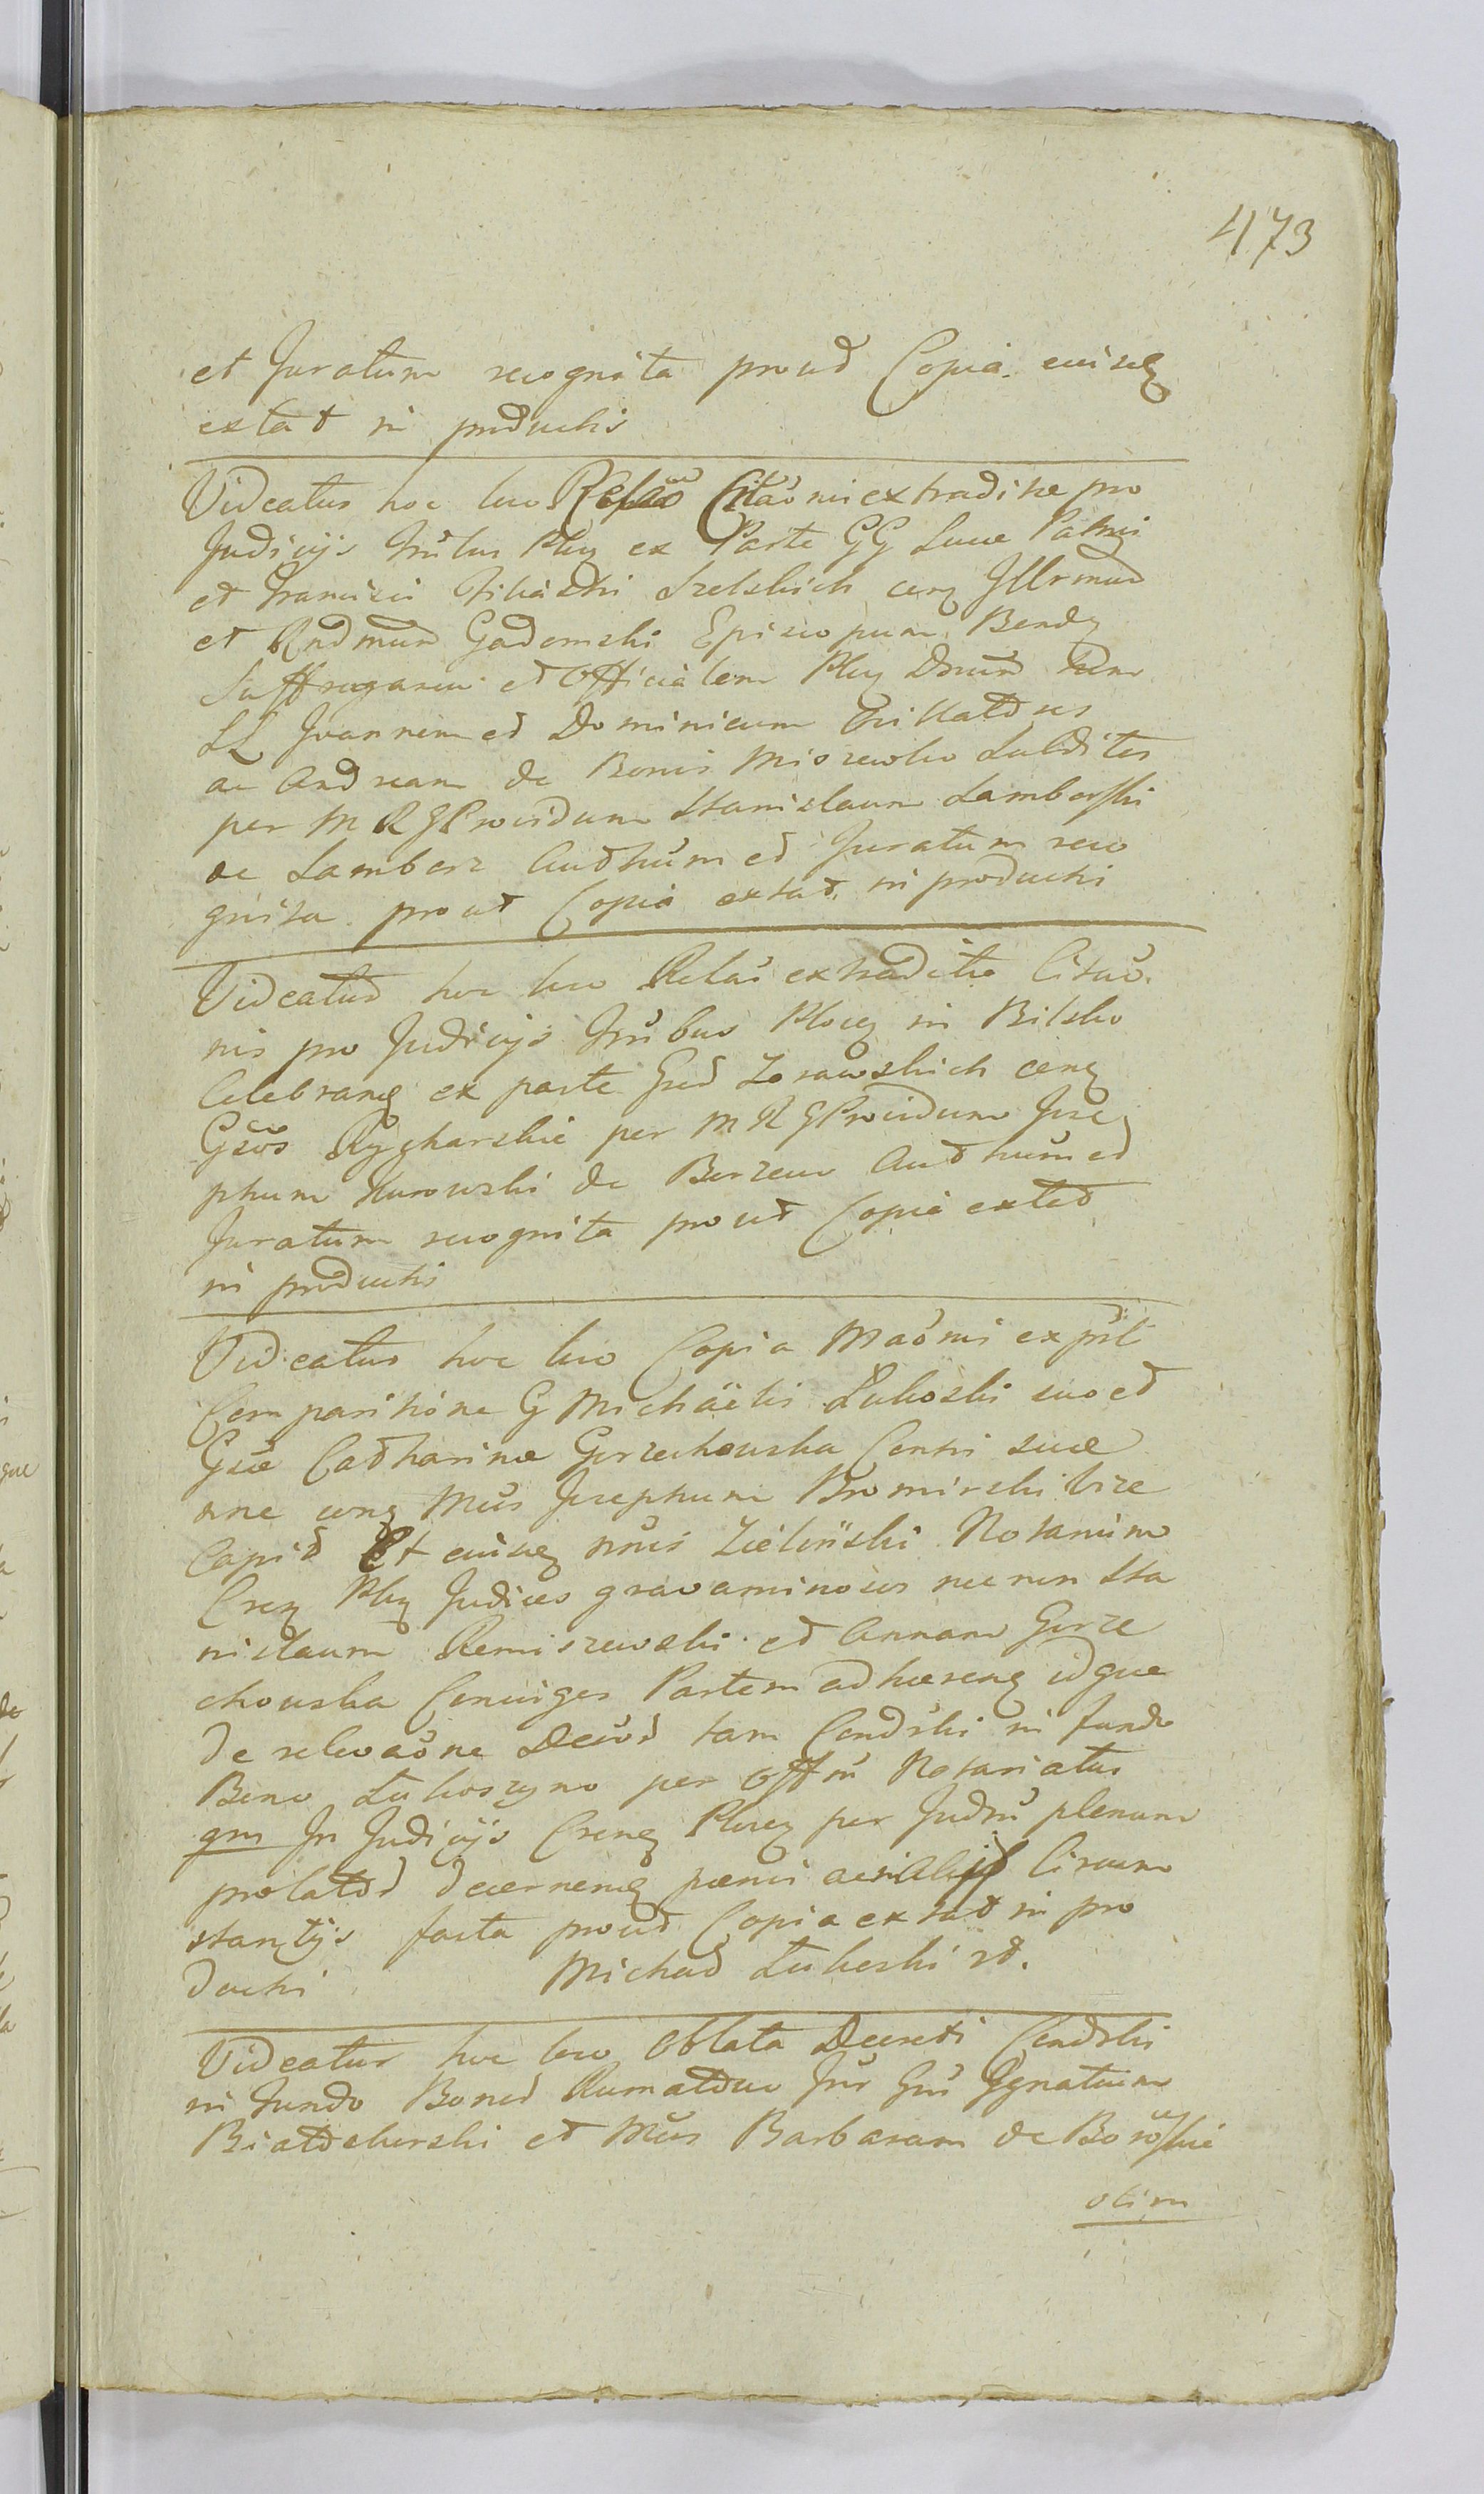 473
et Juratum recognita prout Copia eiusq
extat in productis
Videatur hoc loco Relao Citaõnis extraditæ pro
Judicijs Trũlus Plocq ex Parte GG Lucæ Patris
et Francisci Filij Szelskich conq Illrmum
et Rndmum Gadomski Episcopum Bendq
Suffraganeu et Officialem Plocq Dnum
LL Joannem et Dominicum
ac Andream de Bonis Miszewko Subditos
per M R G Providum Stanislaum Lamberski
de Lamberz Authũm et Juratum reco
gnita prout Copia extat in productis
Videatur hoc loco Relaõ extraditæ Citaõ
nis pro Judicijs Trũbus Plocq in Bilsko
Celebranq ex parte Gnd Zorawskich conq
Gsos Rygharskie per M R G Providum Jose
phum Kurowski de Borzewo Authũm et
Juratum recognita prout Copia extat
in productis
Videatur hoc loco Copia Maõnis ex pśt
Comparitióne G Michäelis Łukoski suo et
Gsæ Catharinæ Gorzechowska Conthi suæ
nne conq Mũs Josephum Bromirski Vice
Capit Et eiusq Zieliński Notarium
Crenq Plocq Judices gravaminosos nec non Sta
nislaum Remiszewski et Annam Gorze
chowska Coniuges Partem adhærenq idque
de relevaõne Decrõd tam Condślis in fundo
Bono Łukoszyno per Offm Notariatus
qm In Judicijs Crenq Plocq per Judm plenum
prolatod decernenq pœnis acialijs Circum
stantijs facta prout Copia extat in pro
ductis Michad Łukoski st.
Videatur hoc loco Oblata Decreti Condślis
in fundo Bonod Int Gm Ignatium
et Mũs Barbaram de
olim